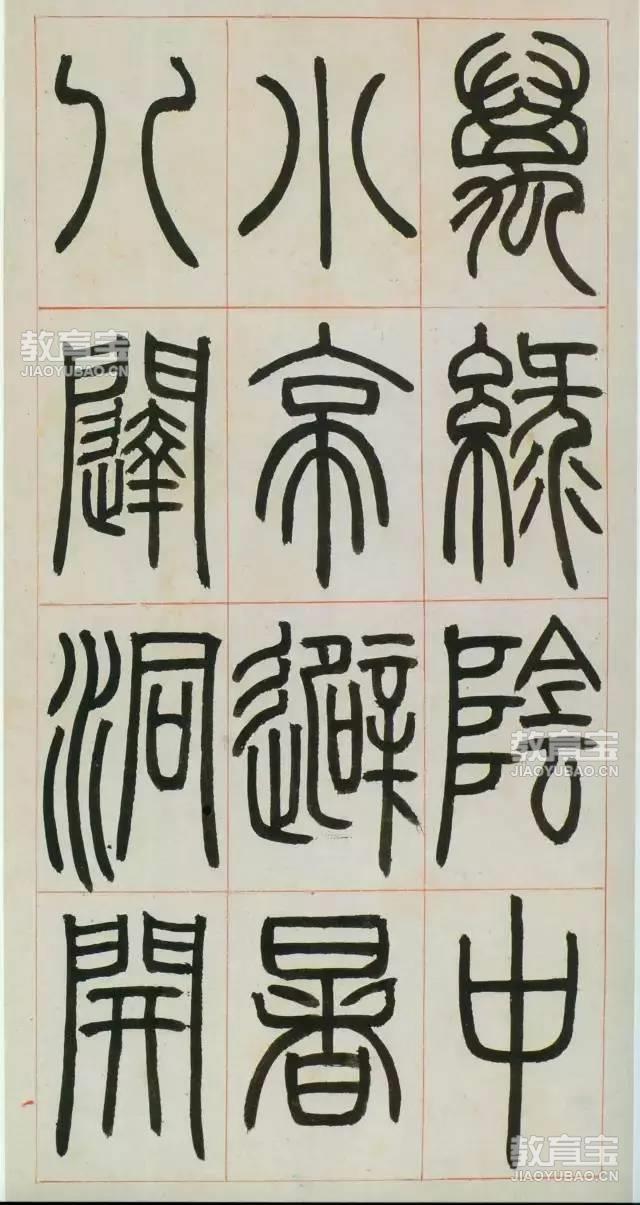 萬綠陰中
小亭避暑
八闥洞開
教育宝
JIAOYUBAO.CN
教育宝
JIAOYUBAO.CN
教育宝
JIAOYUBAO.CN